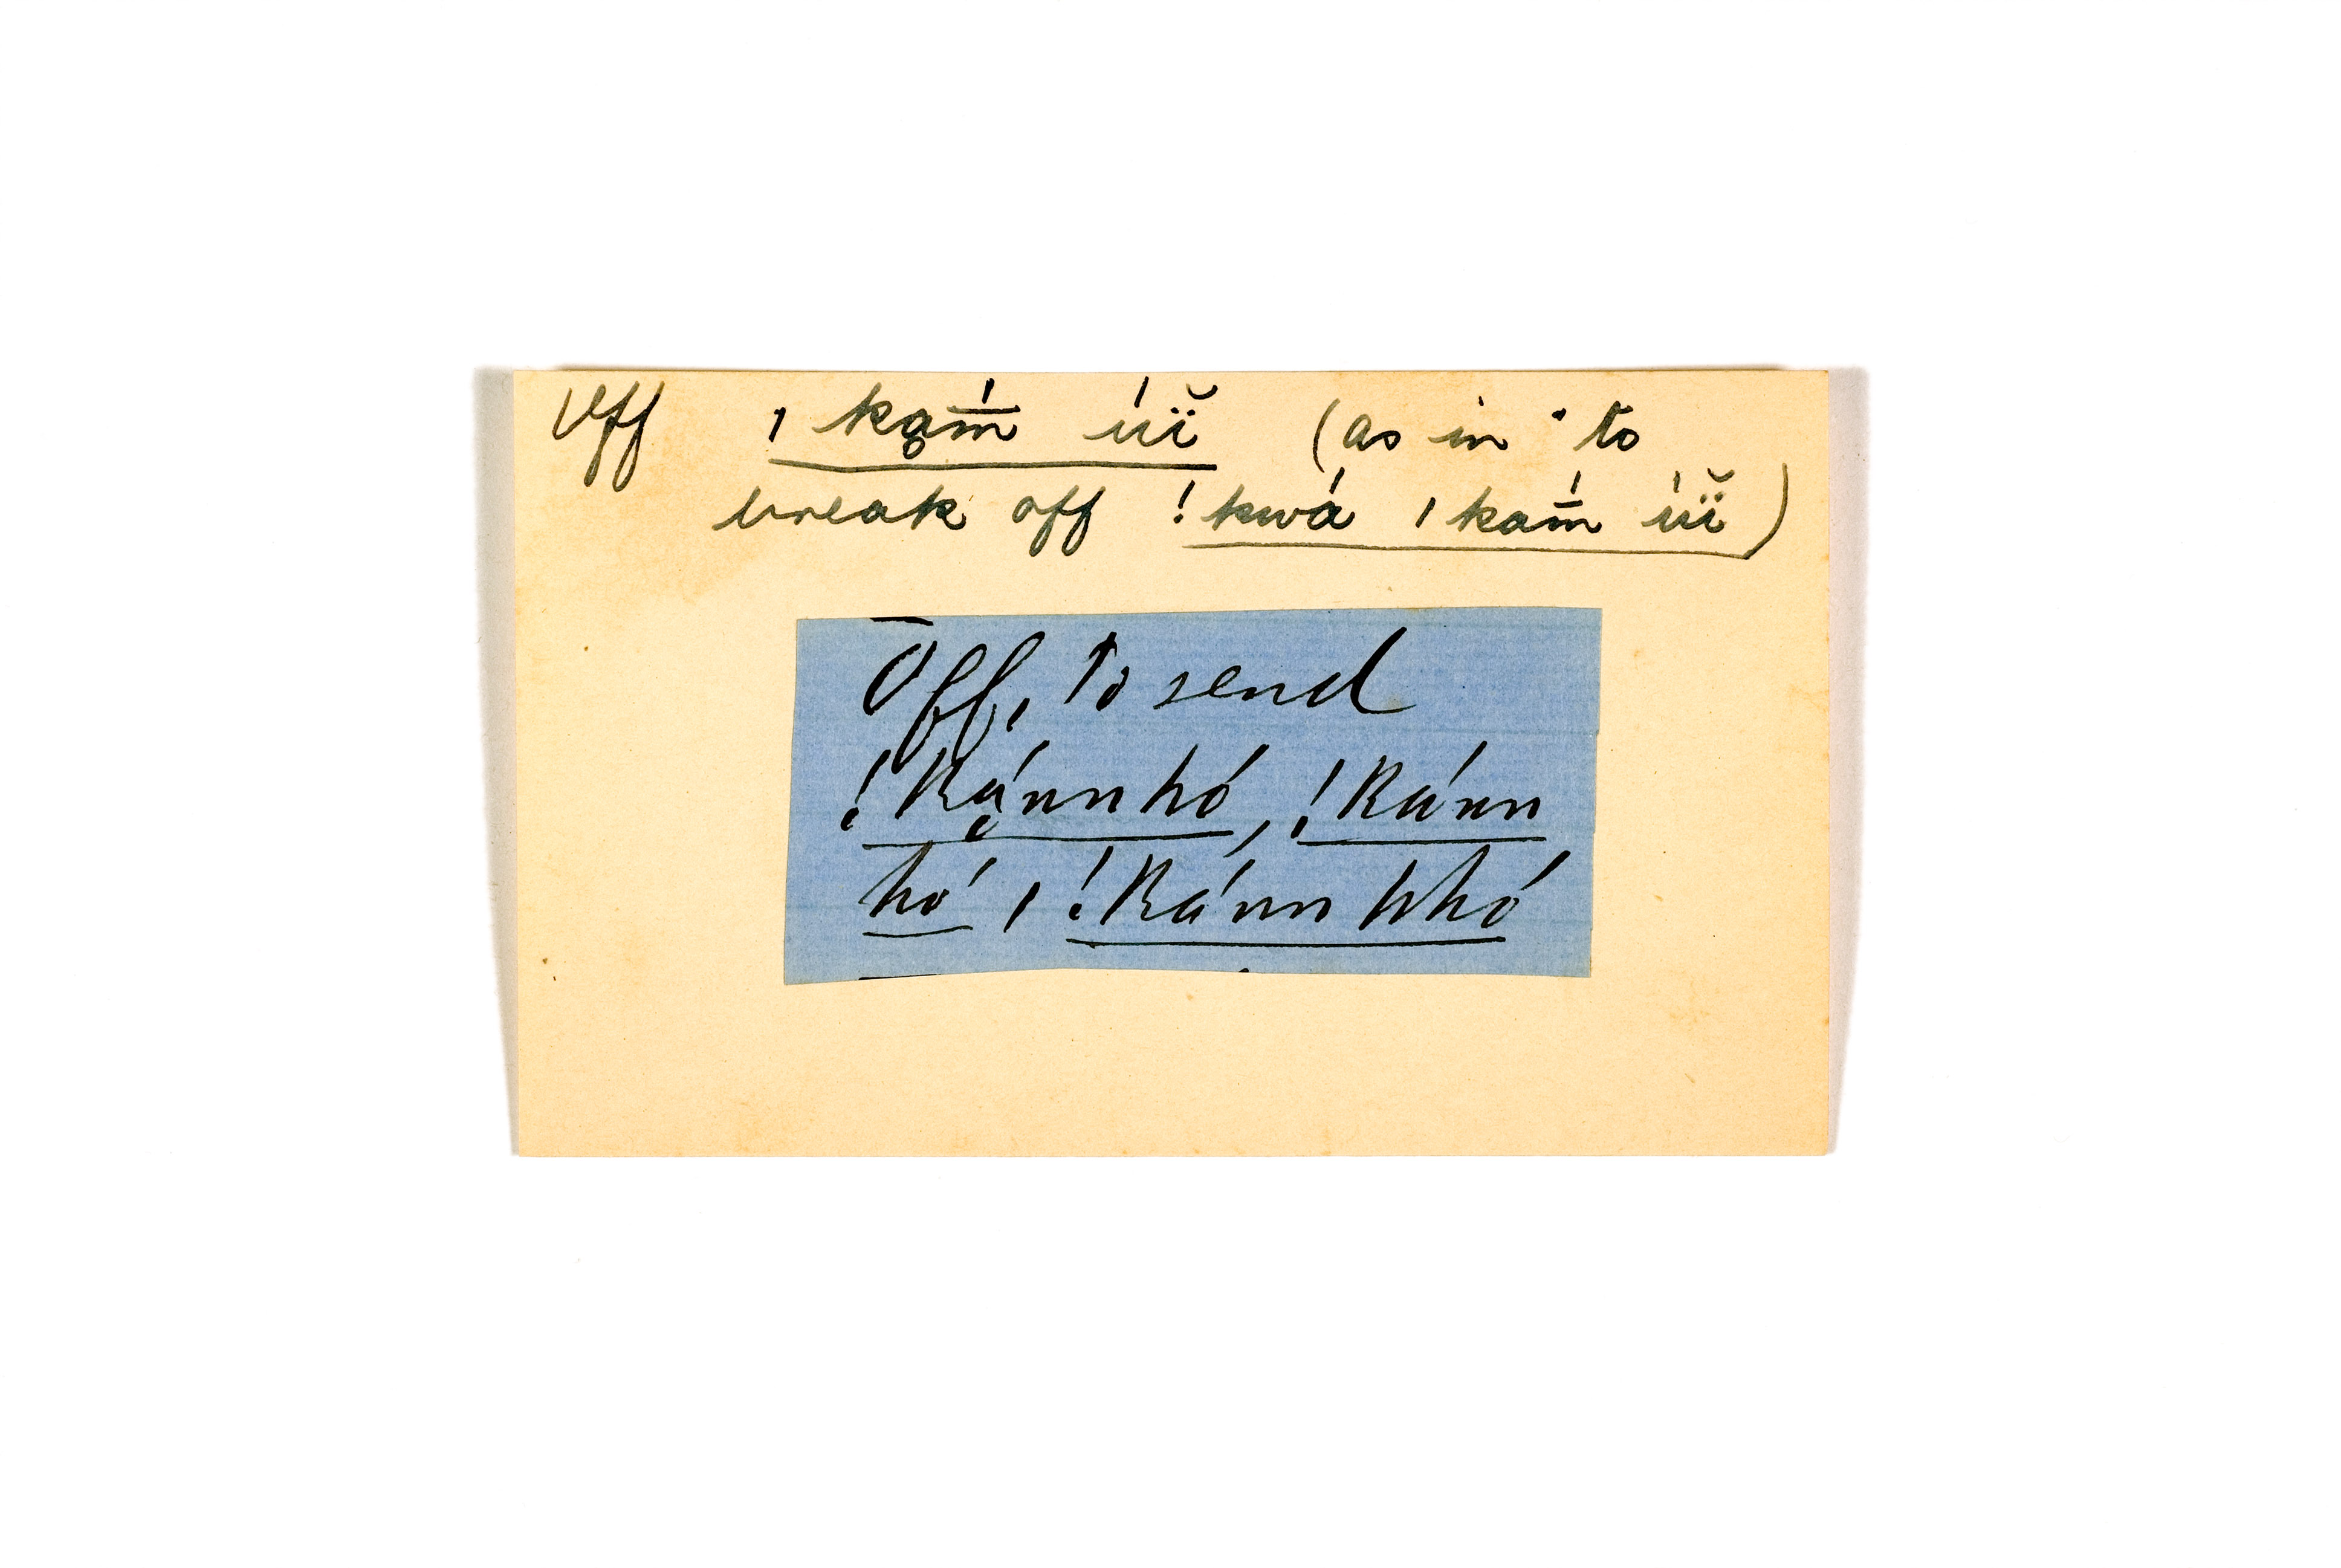 Off ı kạm̄́ úĭ̈ (as in to
break off !kwá ı kam̄́ úĭ̈)
Off, to send
!kạ́nn hó, !kánn
hó, !kánn hhó